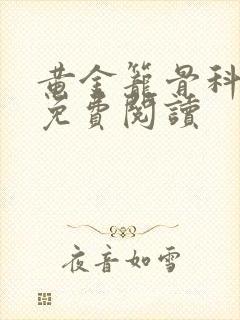 黄金籠骨科
免費閱讀
夜音如雪